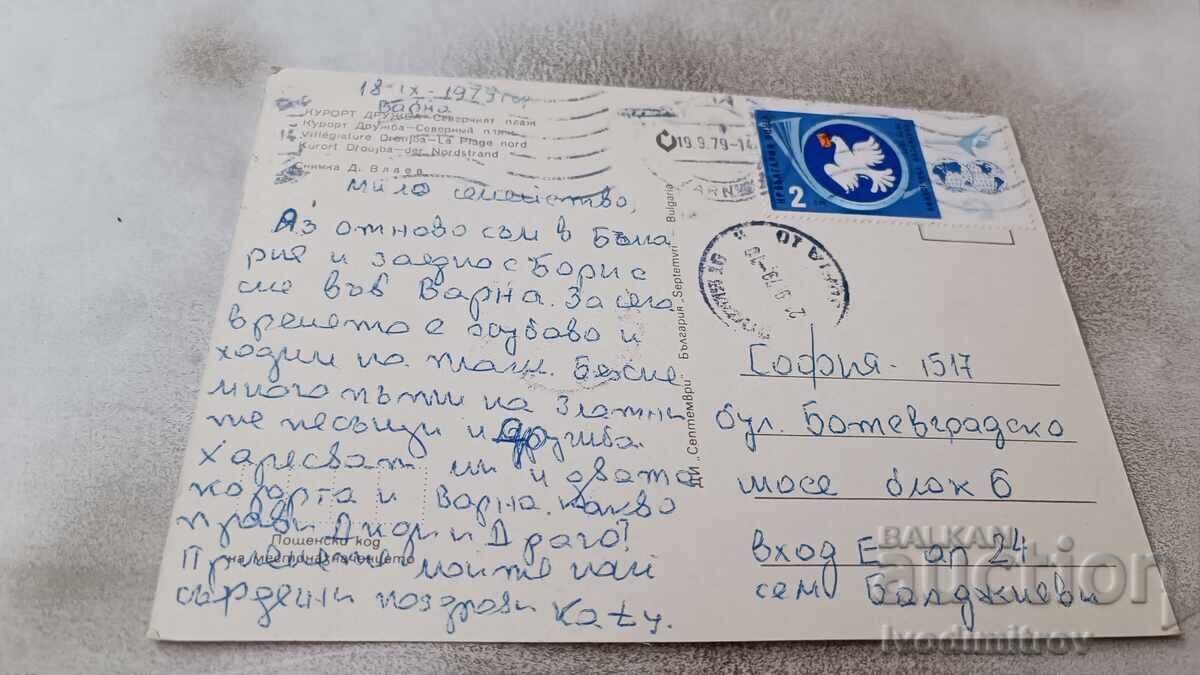 18-IX-1979 год
Варна
КУРОРТ ДРУЖБА-Северният плаж
Курорт Дружба-Северный пляж
Villégiature Droujba-La Plage nord
Kurort Droujba-der Nordstrand
Снимка Д. Владев
Мило семейство,
Аз отново съм в Бълга
рия и заедно с Борис
сме във Варна. За сега
времето е хубаво и
ходим на плаж. Бяхме
много пъти на Златни
те пясъци и Дружба.
Харесват ми и двата
курорта и Варна. Какво
прави Диди и Драго?
Приемете моите най
сърдечни поздрави Katy.
Пощенски код
на местоназначението
ДИ „Септември" България „Septemvri" - Bulgaria
19.9.79-14
НР БЪЛГАРИЯ
2
София - 1517
бул. Ботевградско
шосе блок 6
вход Е ап 24
сем. Балджиеви
BALKAN
auction
Ivodimitrov